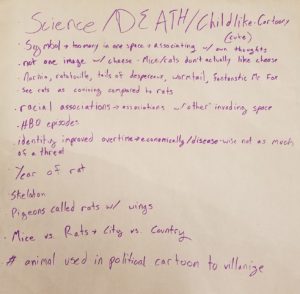 Science/DEATH/Childlike-Cartoony
(cute)
• Symbol → too many in one space → associating w/ own thoughts
• not one image w/ cheese - Mice/rats don't actually like cheese
• Narnia, ratatouille, tails of despereaux, wormtail, Fantanstic Mr Fox
• See rats as conniving compared to rats
• racial associations → associations w/ other invading space
• HBO episodes
• identity improved overtime → economically/disease-wise not as much
of a threat
• Year of rat
Skeleton
Pigeons called rats w/ wings
• Mice vs. Rats → City vs. Country
# animal used in political cartoon to villanize